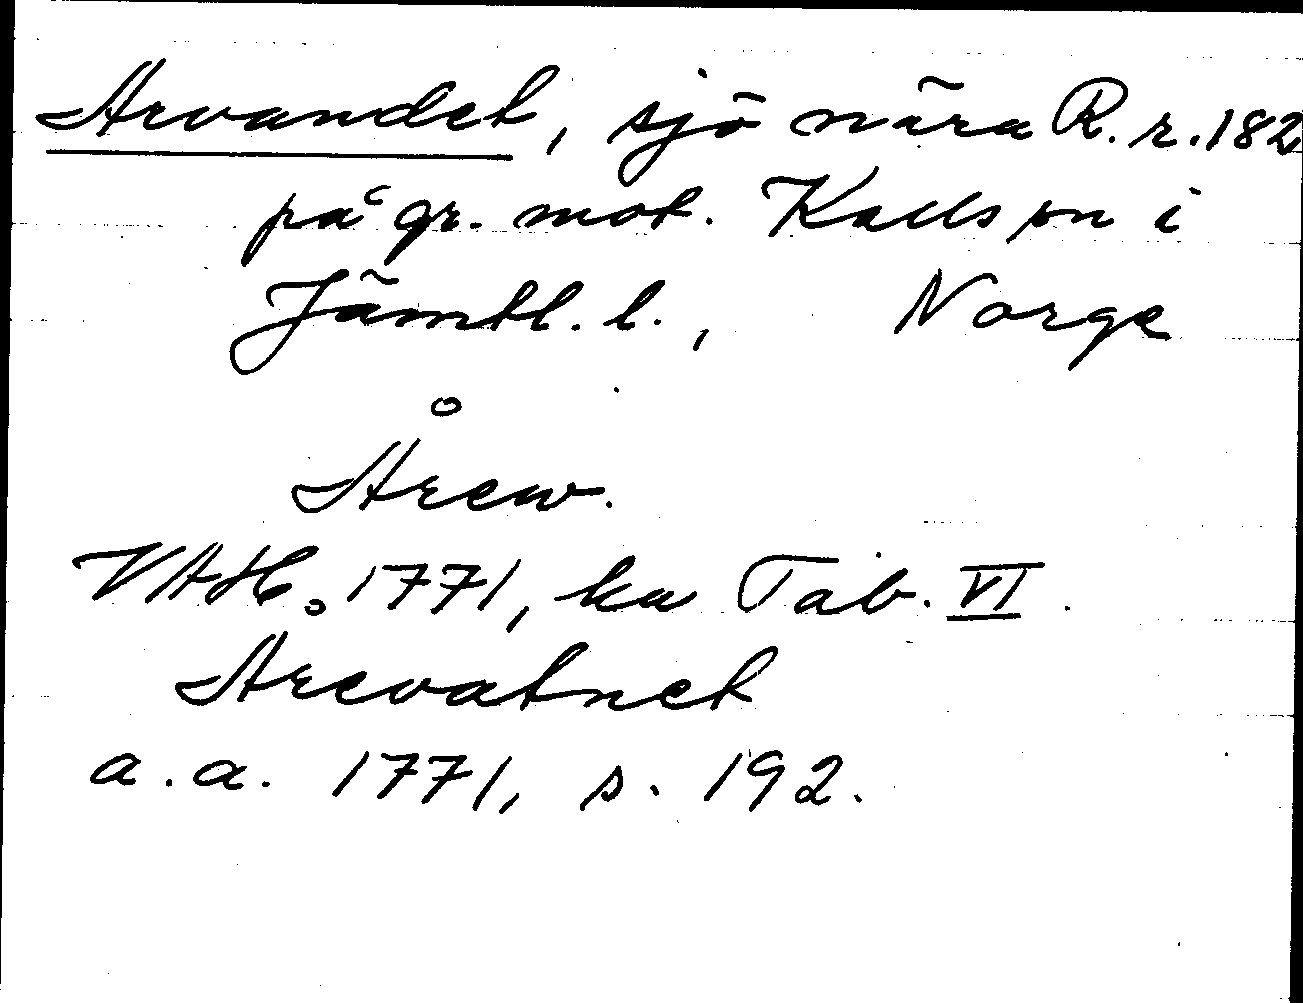 Arvandet, sjö nära R. r. 182
på gr. mot. Kalls sn i
Jämtl. l., Norge
Årew.
VAH. 1771, ka Tab. VI.
Arevatnet
a. a. 1771, s. 192.